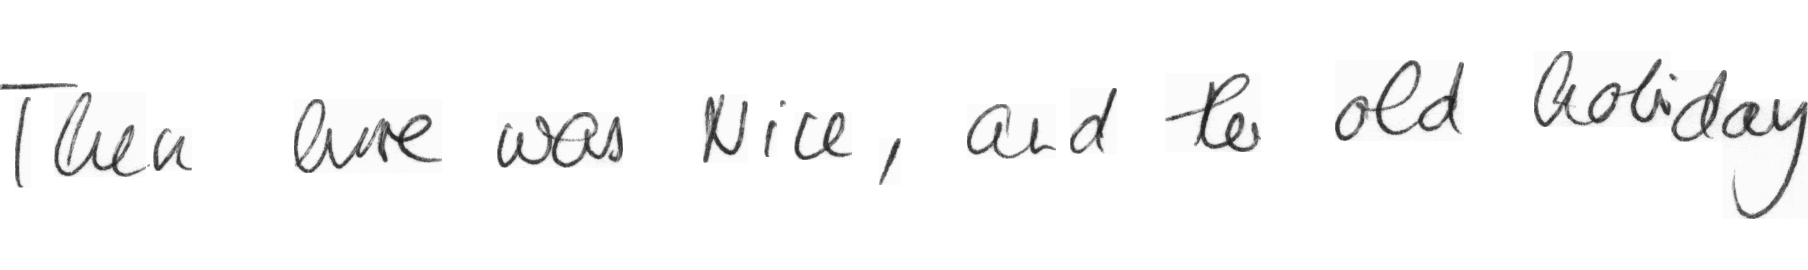 Then here was Nice, and the old holiday